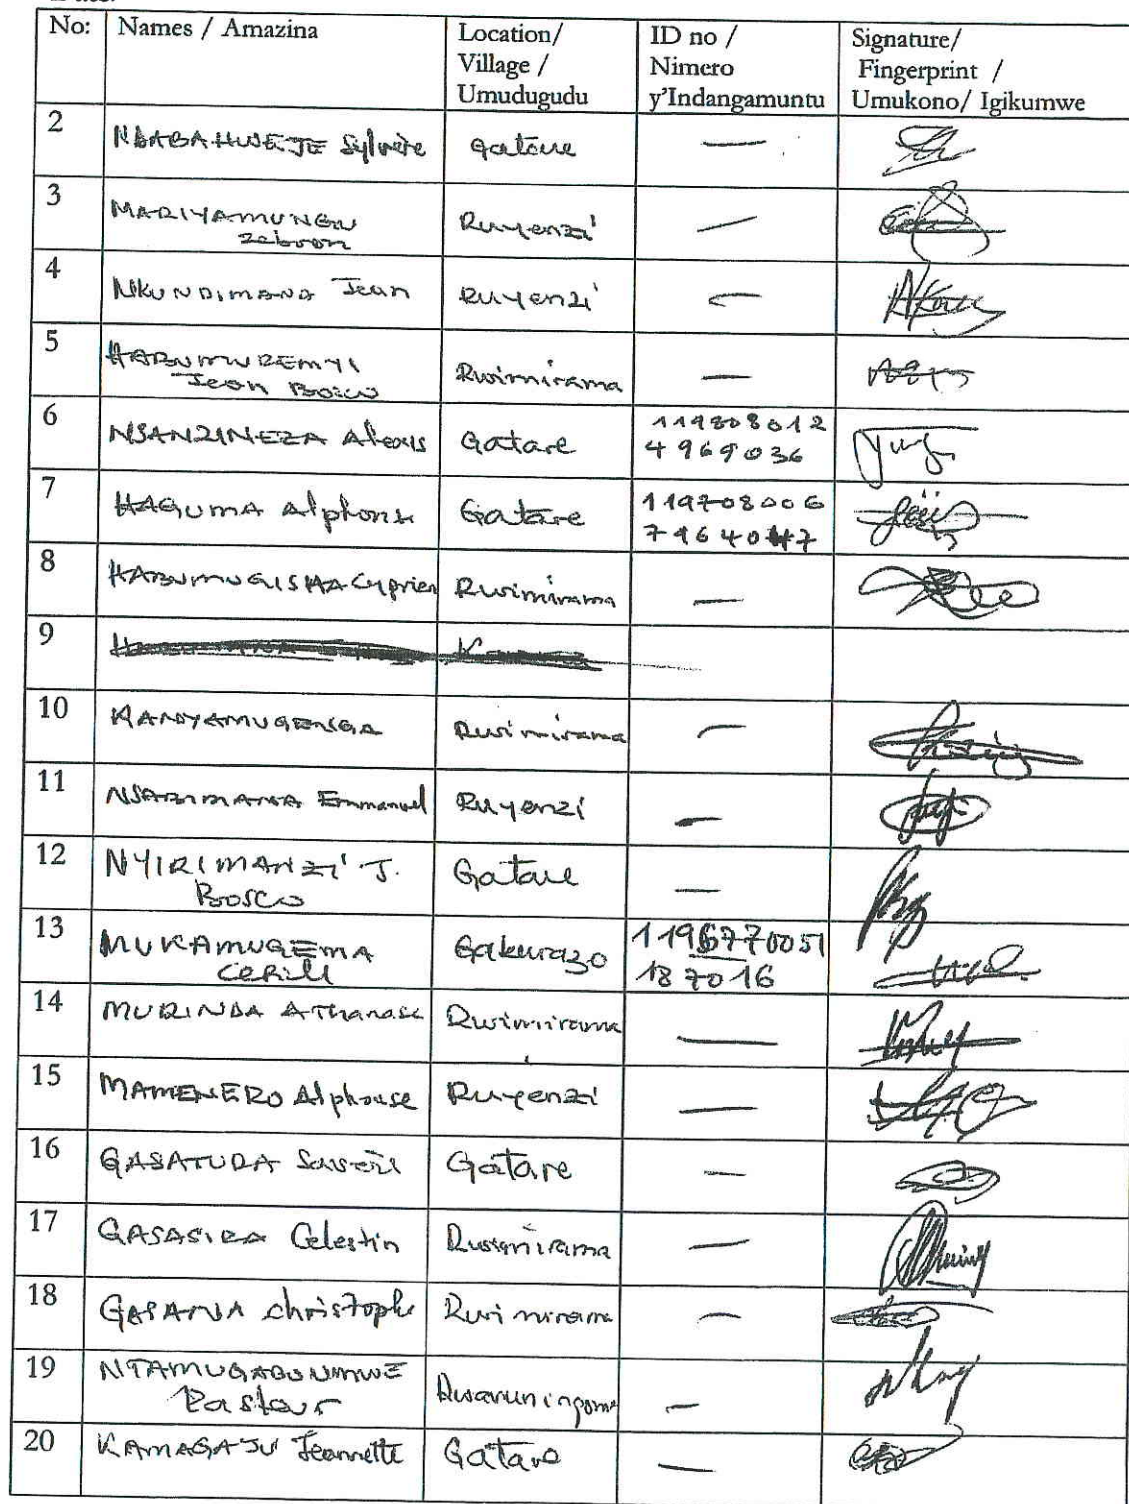 No: Names / Amazina Location/ Village / Umudugudu ID no / Nimero y'Indangamuntu Signature/ Fingerprint / Umukono/ Igikumwe
2 NDABAHWEJE Sylvère Gatare —
3 MARIYAMUNGU Zebron Ruyenzi —
4 NKUNDIMANA Jean Ruyenzi —
5 HABUMUREMYI Jean Bosco Rwimirama —
6 NSANZINEZA Alexis Gatare 119808012 4969036
7 HAGUMA Alphonse Gatare 119708006
8 HABUMUGISHA Cyprien Rwimirama —
9
10 KANYAMUGENGA Rwimirama —
11 NSABIMANA Emmanuel Ruyenzi —
12 NYIRIMANZI J. Bosco Gatare —
13 MUKAMUGEMA Gakurazo 1196770051 187016
14 MURINDA Athanase Rwimirama —
15 MAMENERO Alphonse Ruyenzi —
16 GASATURA Gatare —
17 GASASIRA Celestin Rwimirama —
18 GASANA christophe Rwimirama —
19 NTAMUGABUMWE Pasteur —
20 KAMAGAJU Jeannette Gatare —